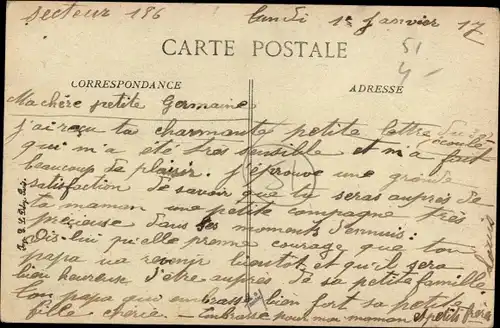 Secteur 186 lundi 1er Janvier 17
CARTE POSTALE
51
CORRESPONDANCE
ADRESSE
Ma chère petite Germaine
j'ai reçu ta charmante petite lettre du
qui m'a été très sensible et m'a fait
beaucoup de plaisir. J'éprouve une grande
satisfaction de savoir que tu seras auprès de
ta maman une petite compagne très
précieuse dans ses moments d'ennuis:
dis-lui qu'elle prenne courage que ton
papa va revenir bientot et qu'il sera
bien heureux d'être auprès de sa petite famille
Ton papa qui embrasse bien fort sa petite
fille chérie - Embrasse pour moi maman et petits frères